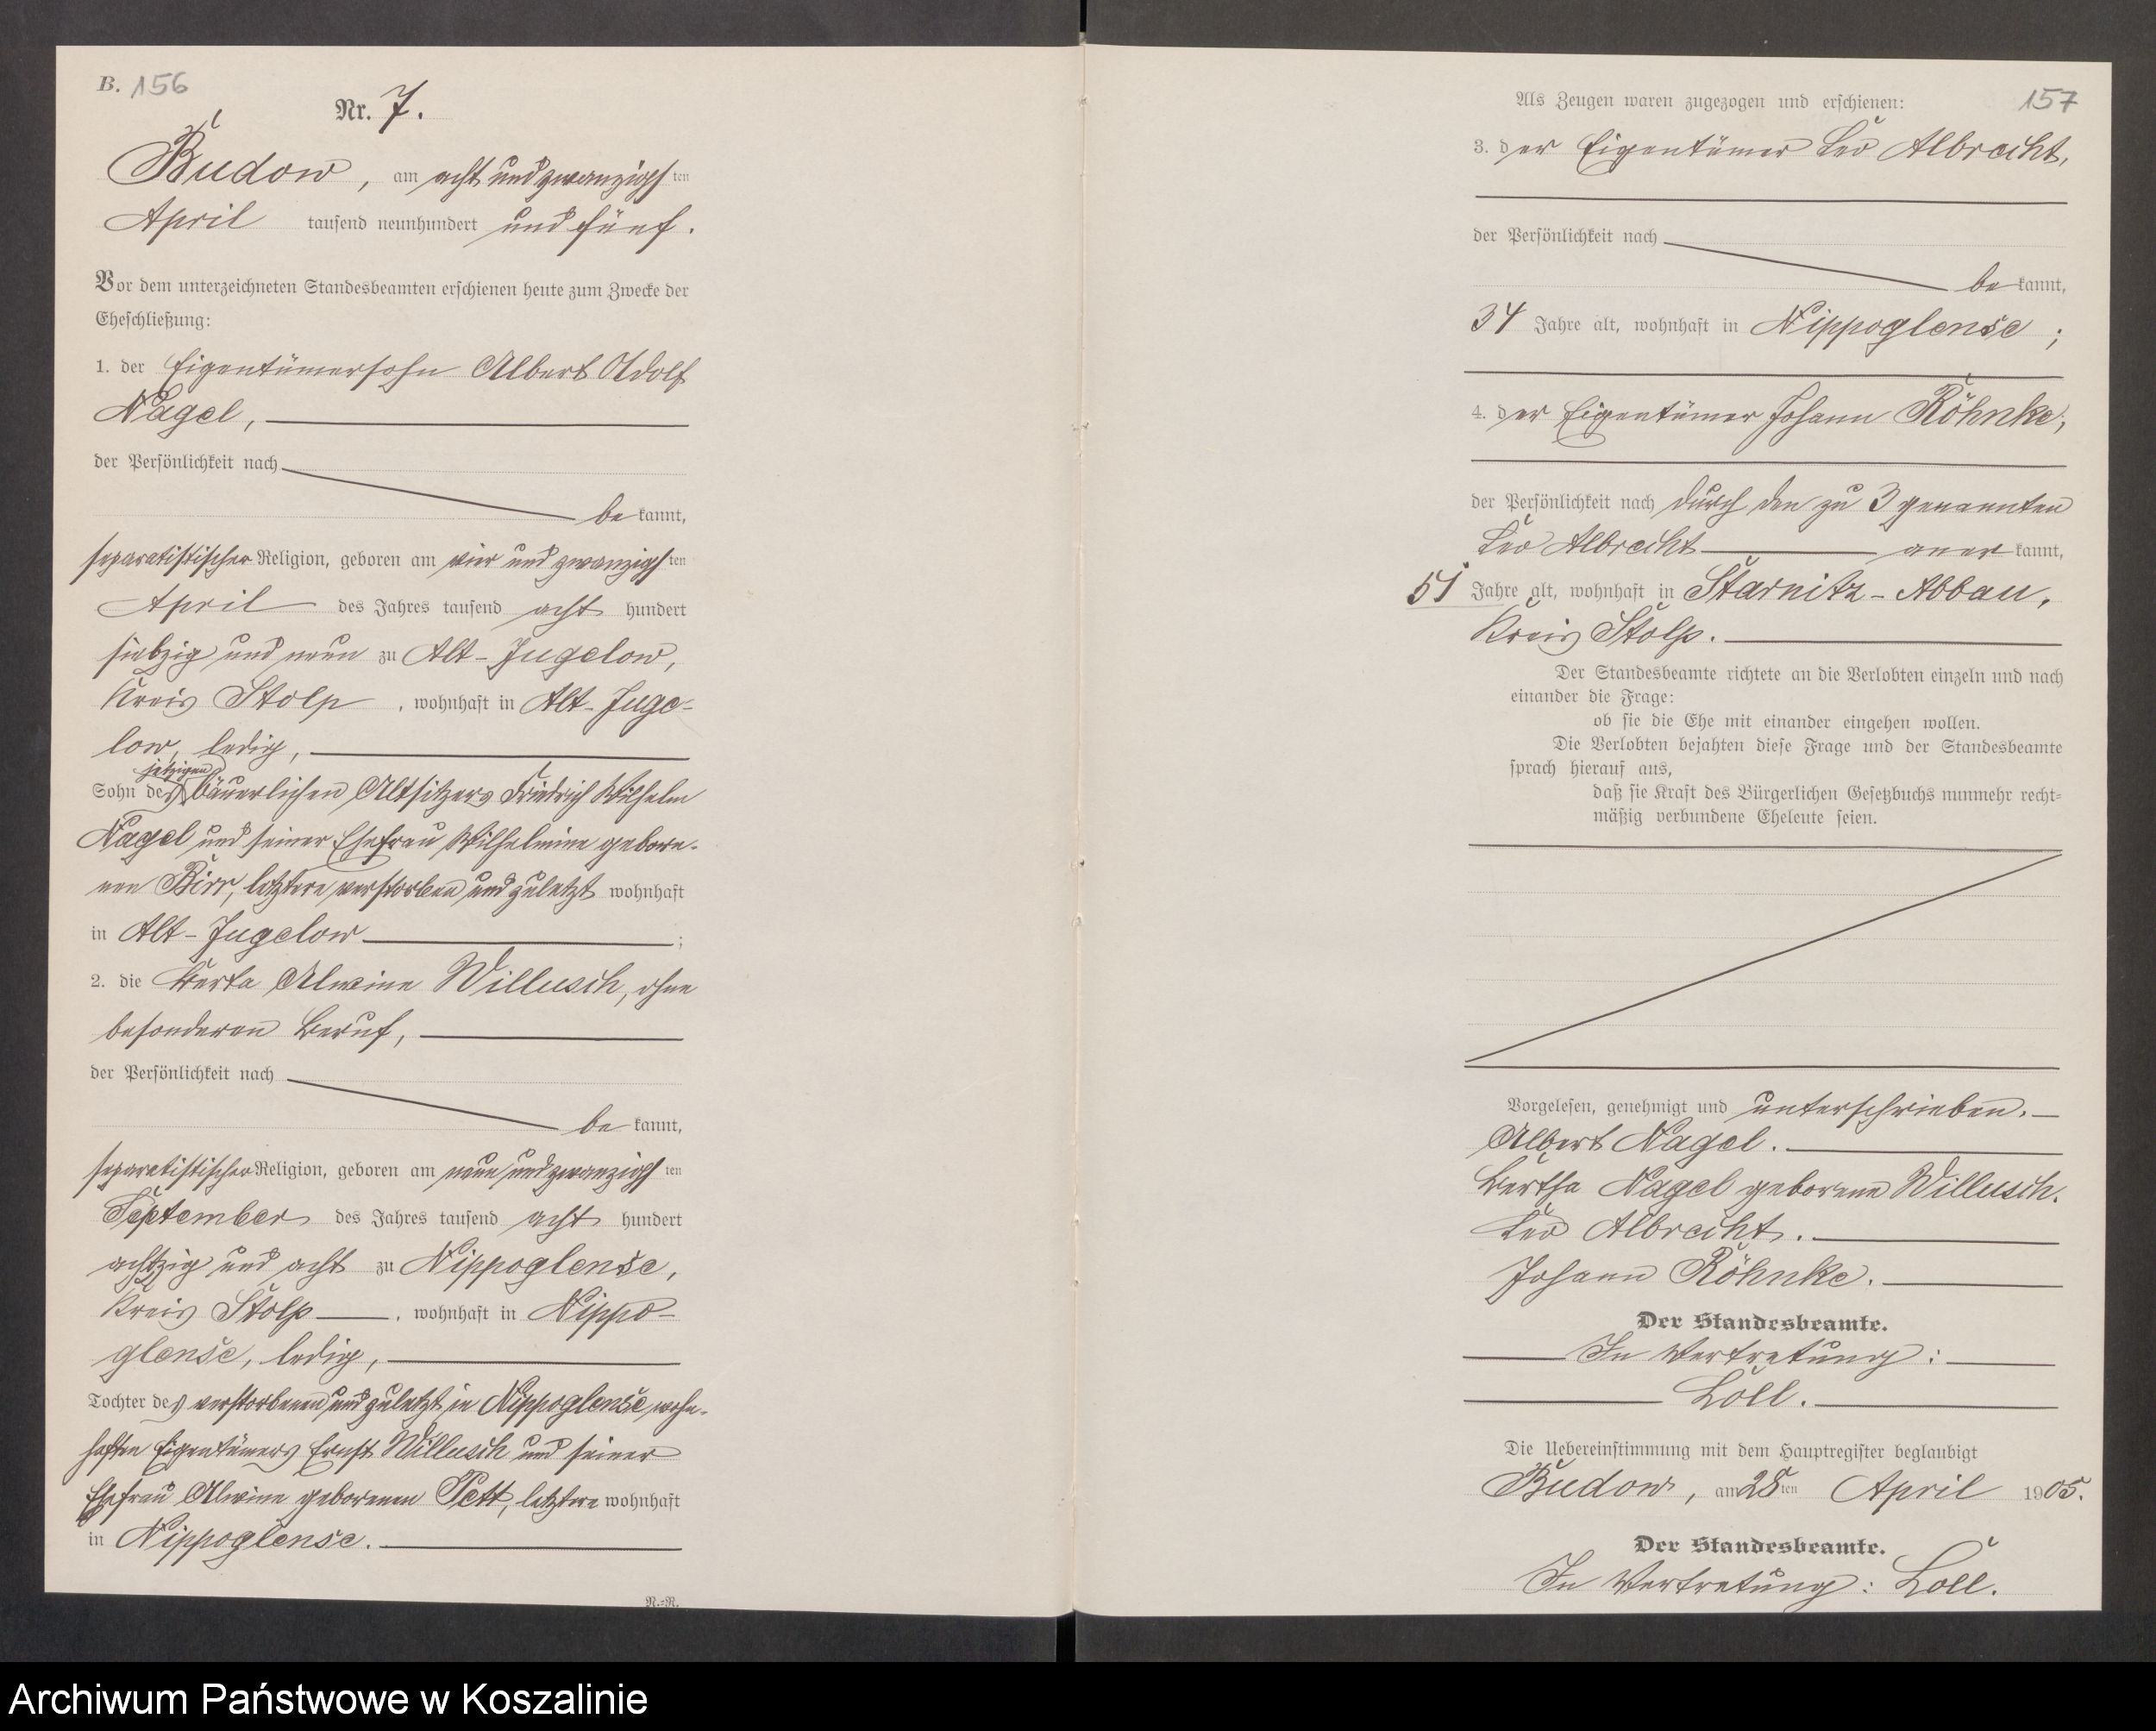 B. 156
Nr. 7.
Budow, am acht und zwanzigsten
April tausend neunhundert und fünf.
Vor dem unterzeichneten Standesbeamten erschienen heute zum Zwecke der
Eheschließung:
1. der Eigentümersohn Albert Adolf
Nagel,
der Persönlichkeit nach
be kannt,
separatistischer Religion, geboren am vier und zwanzigsten
April des Jahres tausend acht hundert
siebzig und neun zu Alt-Jugelow,
Kreis Stolp, wohnhaft in Alt-Juge-
low, ledig,
jetzigen
Sohn des bäuerlichen Altsitzers Friedrich Wilhelm
Nagel und seiner Ehefrau Wilhelmine gebore-
nen Birr, letztere verstorben und zuletzt wohnhaft
in Alt-Jugelow ;
2. die Berta Alwine Willusch, ohne
besonderen Beruf,
der Persönlichkeit nach
be kannt,
separatistischer Religion, geboren am neun und zwanzigsten
September des Jahres tausend acht hundert
achtzig und acht zu Nippoglense,
Kreis Stolp, wohnhaft in Nippo-
glense, ledig,
Tochter des verstorbenen und zuletzt in Nippoglense wohn-
haften Eigentümers Ernst Willusch und seiner
Ehefrau Alwine geborenen Pett, letztere wohnhaft
in Nippoglense.
N.-R.
Als Zeugen waren zugezogen und erschienen: 157
3. der Eigentümer Leo Albrecht,
der Persönlichkeit nach
be kannt,
34 Jahre alt, wohnhaft in Nippoglense ;
4. der Eigentümer Johann Röhnke,
der Persönlichkeit nach durch den zu 3 genannten
Leo Albrecht aner kannt,
51 Jahre alt, wohnhaft in Starnitz-Abbau,
Kreis Stolp.
Der Standesbeamte richtete an die Verlobten einzeln und nach
einander die Frage:
ob sie die Ehe mit einander eingehen wollen.
Die Verlobten bejahten diese Frage und der Standesbeamte
sprach hierauf aus,
daß sie kraft des Bürgerlichen Gesetzbuchs nunmehr recht-
mäßig verbundene Eheleute seien.
Vorgelesen, genehmigt und unterschrieben.
Albert Nagel.
Bertha Nagel geborene Willusch.
Leo Albrecht.
Johann Röhnke.
Der Standesbeamte.
In Vertretung:
Loll.
Die Uebereinstimmung mit dem Hauptregister beglaubigt
Budow, am 28ten April 1905.
Der Standesbeamte.
In Vertretung: Loll.
Archiwum Państwowe w Koszalinie